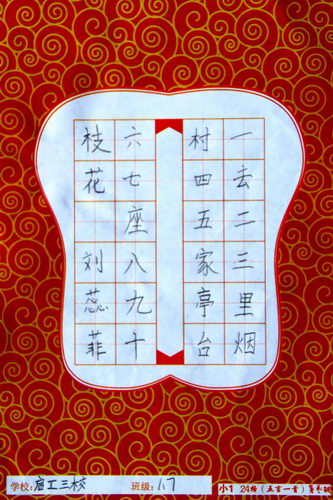 一去二三里烟
村四五家亭台
六七座八九十
枝花 刘蕊菲
学校:启工三校 班级:1.7
小1 24格(五言一首)